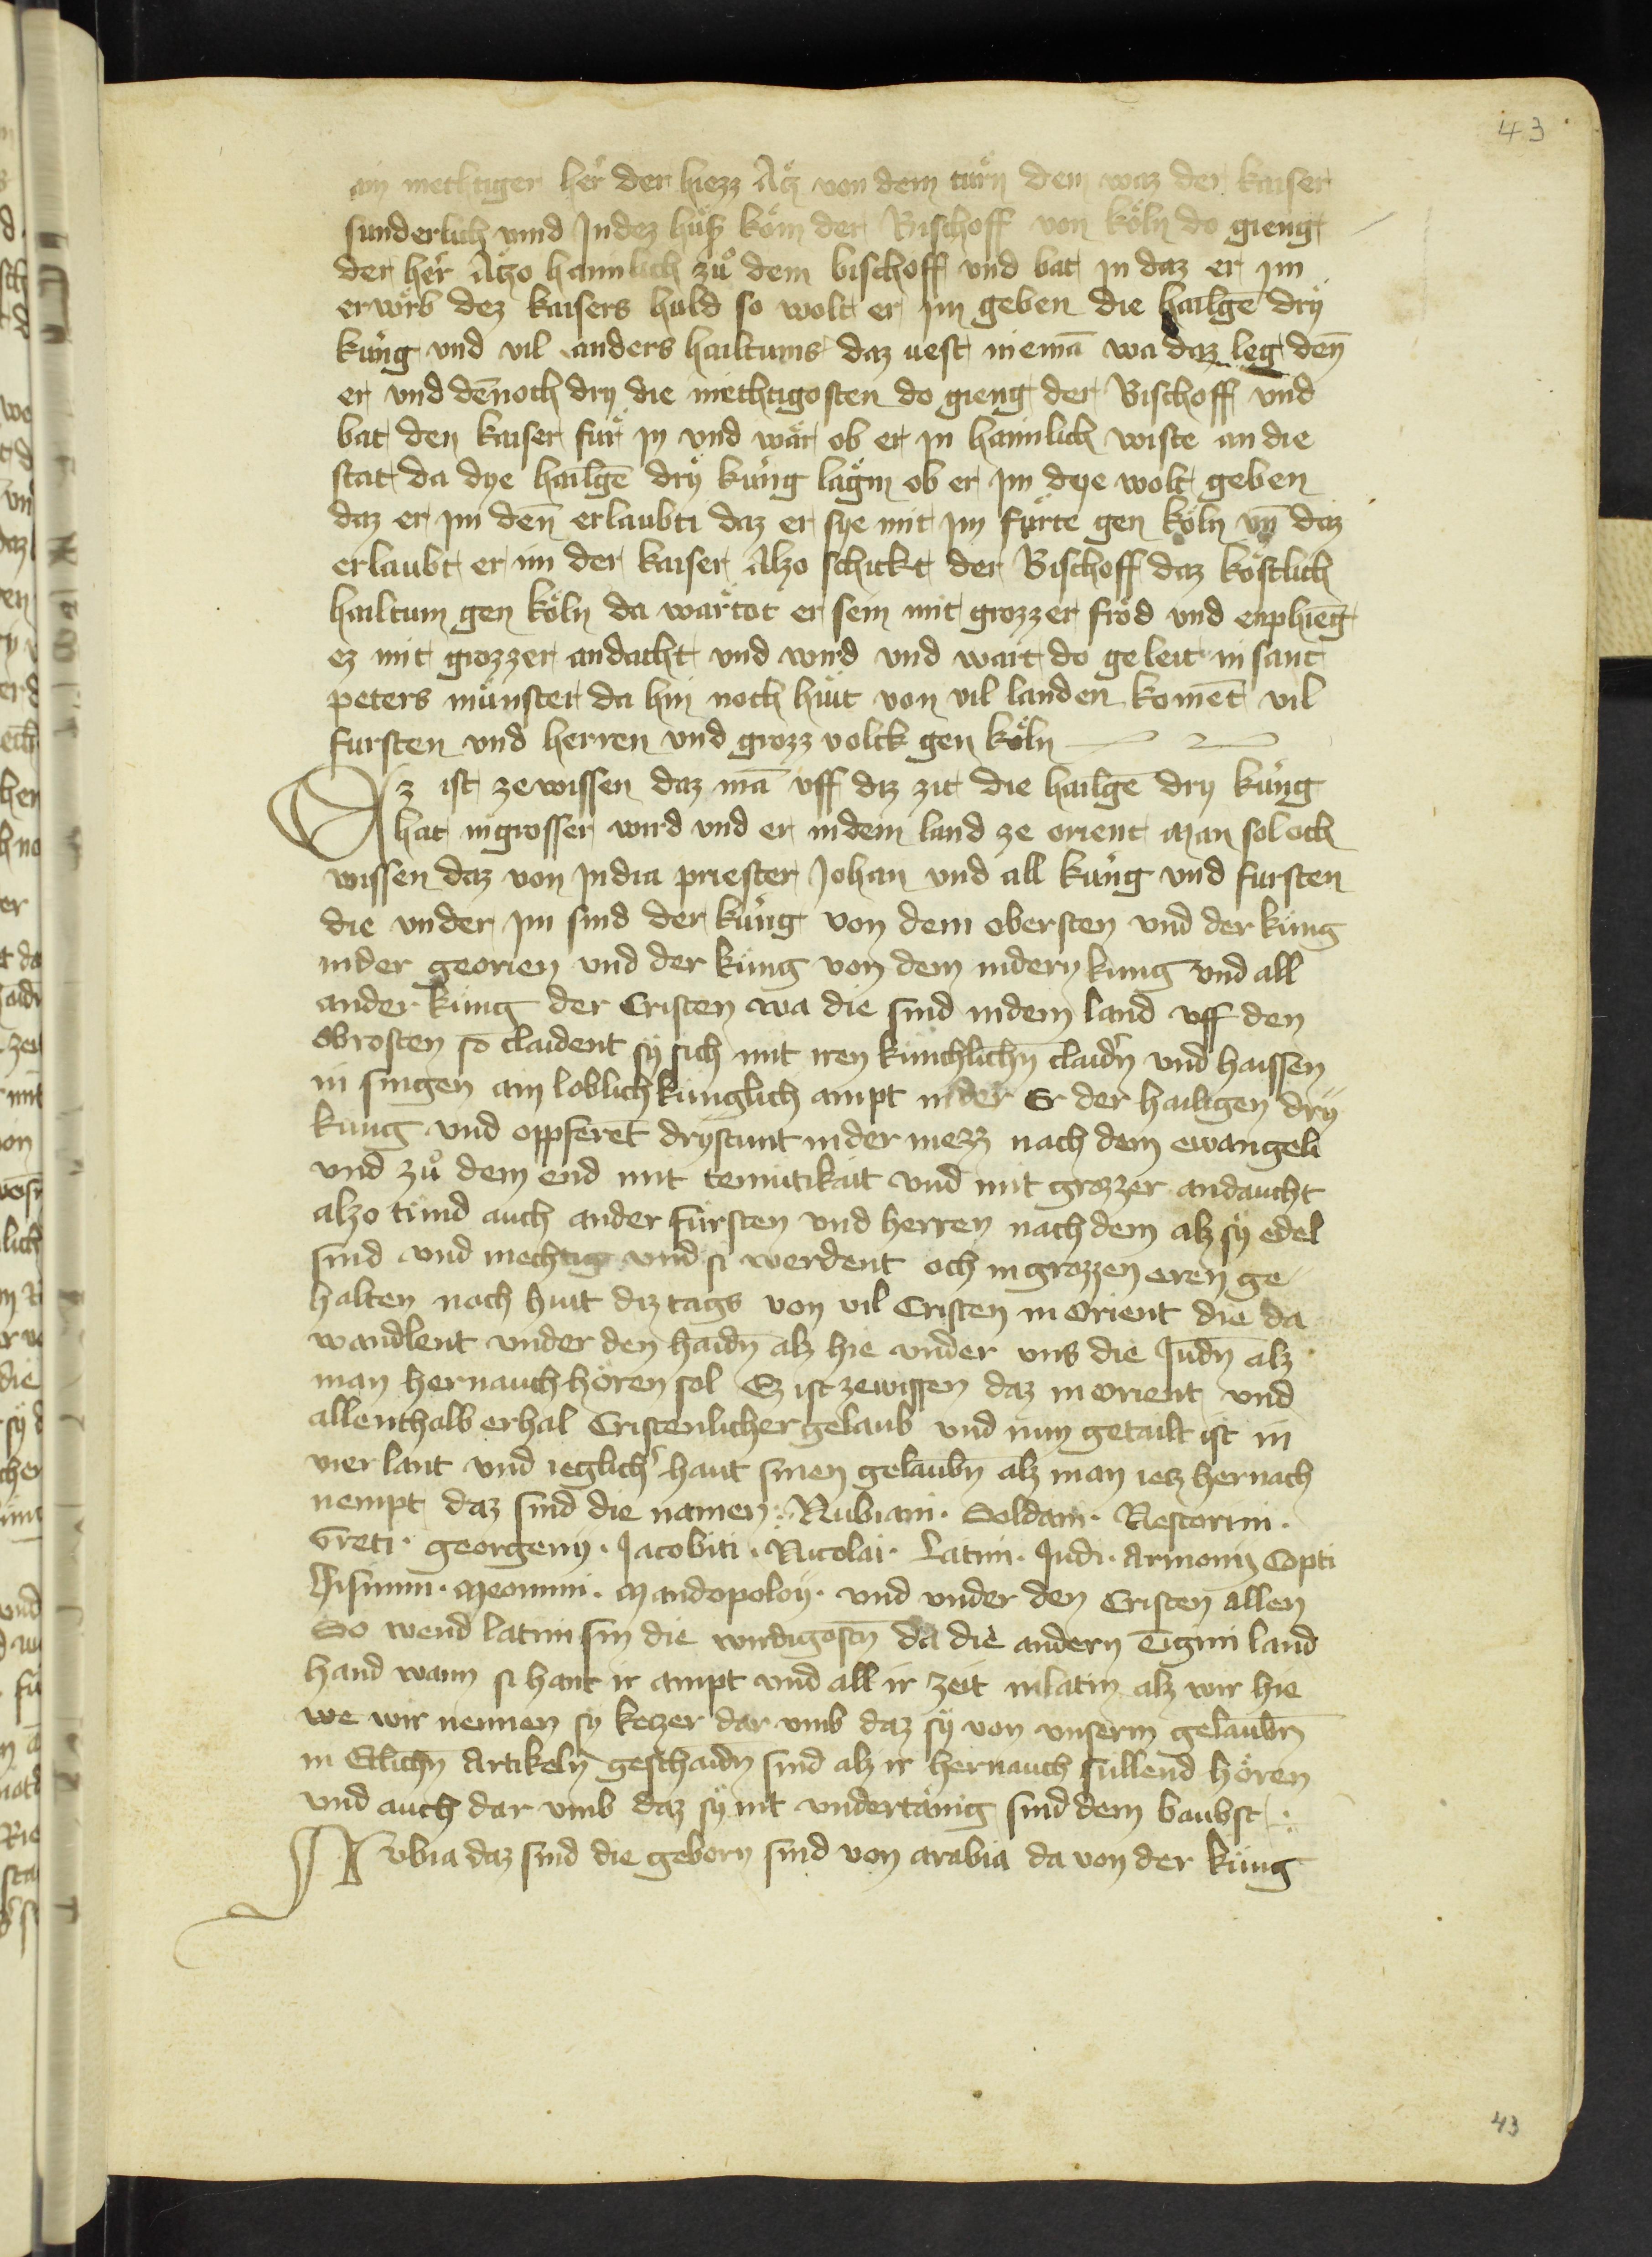 43
ain mechtiger her̾ der hiezz Atz von dem turn dem waz der kaiser
sunderlich vind Indez huß kom der Bischoff von köln do gieng
der her̾ Atzo haimlich zů dem bischoff vnd bat in daz er im
erwrb dez kaisers huld so wolt er im geben die hailgē drÿ
küng vnd vil anders hailtums daz uest niemā wa daz leg den̄
er vnd dēnoch dry die mechtigosten do gieng der Bischoff vnd
bat den kaiser für in vnd wär ob er in haimlich wiste an die
stat da dye hailgē drÿ küng lägin ob er im dye wolt geben
daz er im den̄ erlaubti daz er sye mit im fürte gen köln vn̄ daz
erlaubt er im der kaiser Alzo schickt der Bischoff daz köstlich
hailtum gen köln da wartot er sein mit grozzer fröd vnd enphieng
ez mit grozzer andacht vnd wird vnd wart do geleit in sant
peters münster da hin noch hüt von vil landen komēt vil
fursten vnd herren vnd grozz volck gen köln
Ez ist ze wissen daz mā vff diz zit die hailgē dry küng
hat in grosser wird vnd er in dem land ze orient Man sol och
wissen daz von India priester Johan vnd all küng vnd fursten
die vnder im sind der küng von dem obersten vnd der küng
in der georien vnd der küng von dem nidern kung vnd all
ander küng der Cristen wa die sind in dem land vff den
obrosten so claident sÿ sich mit iren künchlichn̄ claidn̾ vnd haissen
in singen ain loblich künglich ampt in der Er der hailigen drÿ
küng vnd oppferēt drystunt in der mezz nach dem ewangeli
vnd zů dem end mit temütikait vnd mit grozzer andaucht
alzo tünd auch ander fürsten vnd herren nach dem alz sÿ edel
sind vnd mechtig vnd si werdent och in grozzen eren ge
halten noch hüt diz tags von vil Cristen in Orient die da
wandlent vnder den haidn̄ alz hie vnder vns die Judn̄ alz
man hernauch hören sol Ez ist ze wissen daz in Orient vnd
allenthalb erhal Cristenlicher gelaub vnd nun getailt ist in
vier lant vnd ieglich̾ haut sinen gelaubn̄ alz man ietz hernach
nempt daz sind die namen: Nubiani. Soldani. Nestorini.
Greti. georgeny. Jacobiti. Nicolai. Latini. Judi. Armonij Copti
Hisinni. Meonini. Mandopoloÿ. vnd vnder den Cristen allen
So wend latini sin die wirdigostn̄ da die andern Eigini land
hand wann si hant ir ampt vnd all ir zeit in latin alz wir hie
we wir nennen sÿ ketzer dar vmb daz sÿ von vnserm gelaubn̄
in Etlichn̄ Artikeln geschaidn̄ sind alz ir hernauch sullend hören
vnd auch dar vmb daz sÿ nit vndertänig sind dem baubst
Nubia daz sind die geborn sind von arabia da von der küng
43